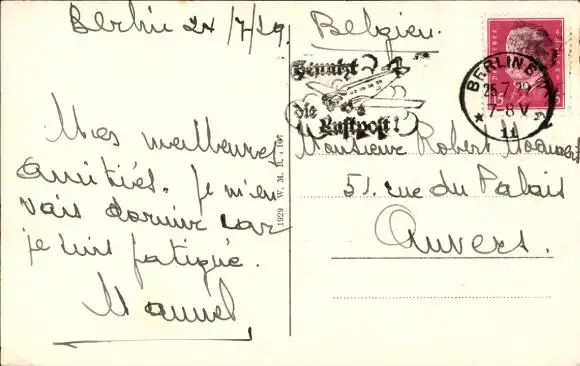 Berlin 24/7/29.
Belgien.
Benutzt
die
Luftpost!
BERLIN
25.7.29
7-8 V
11
15
Mes meilleures
amitiés. Je m'en
vais dormir car
je suis fatigué.
1929 W. M. B.
Monsieur Robert
51. rue du Palais
Anvers.